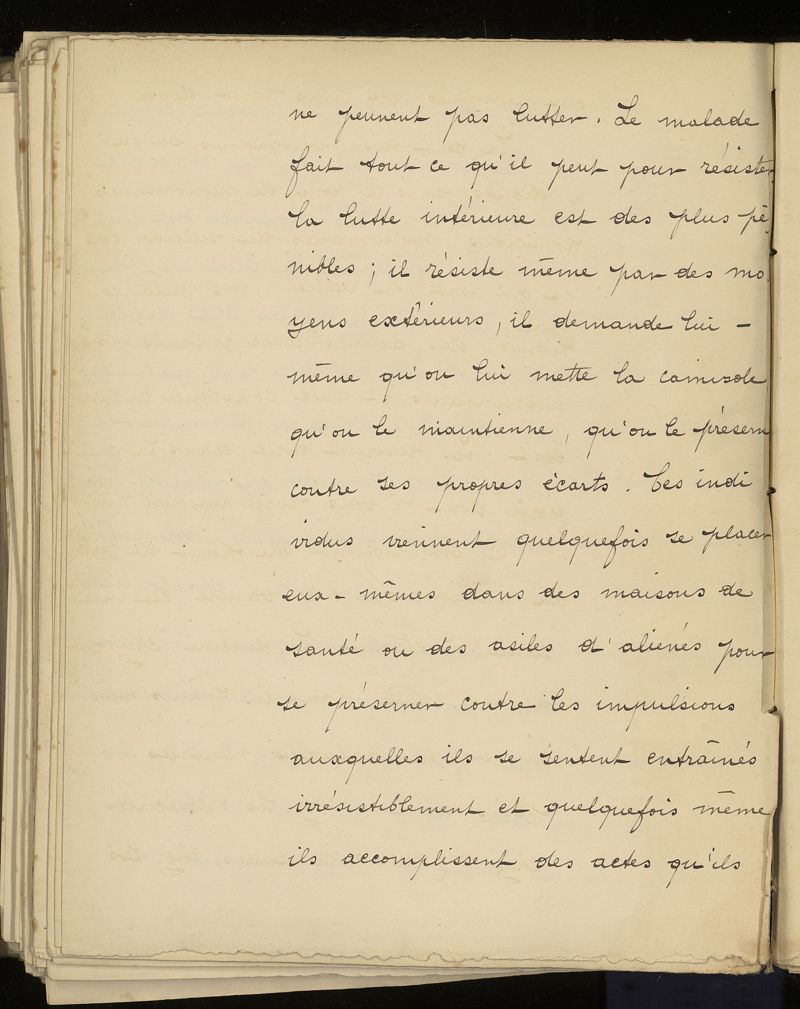 ne peuvent pas lutter. Le malade
fait tout ce qu'il peut pour résister
la lutte intérieure est des plus pé
nibles ; il résiste même par des mo
yens extérieurs, il demande lui -
même qu'on lui mette la camisole
qu'on le maintienne, qu'on le préserve
contre ses propres écarts. Ces indi
vidus viennent quelquefois se placer
eux-mêmes dans des maisons de
santé ou des asiles d'aliénés pour
se préserver contre les impulsions
auxquelles ils se sentent entraînés
irrésistiblement et quelquefois même
ils accomplissent des actes qu'ils